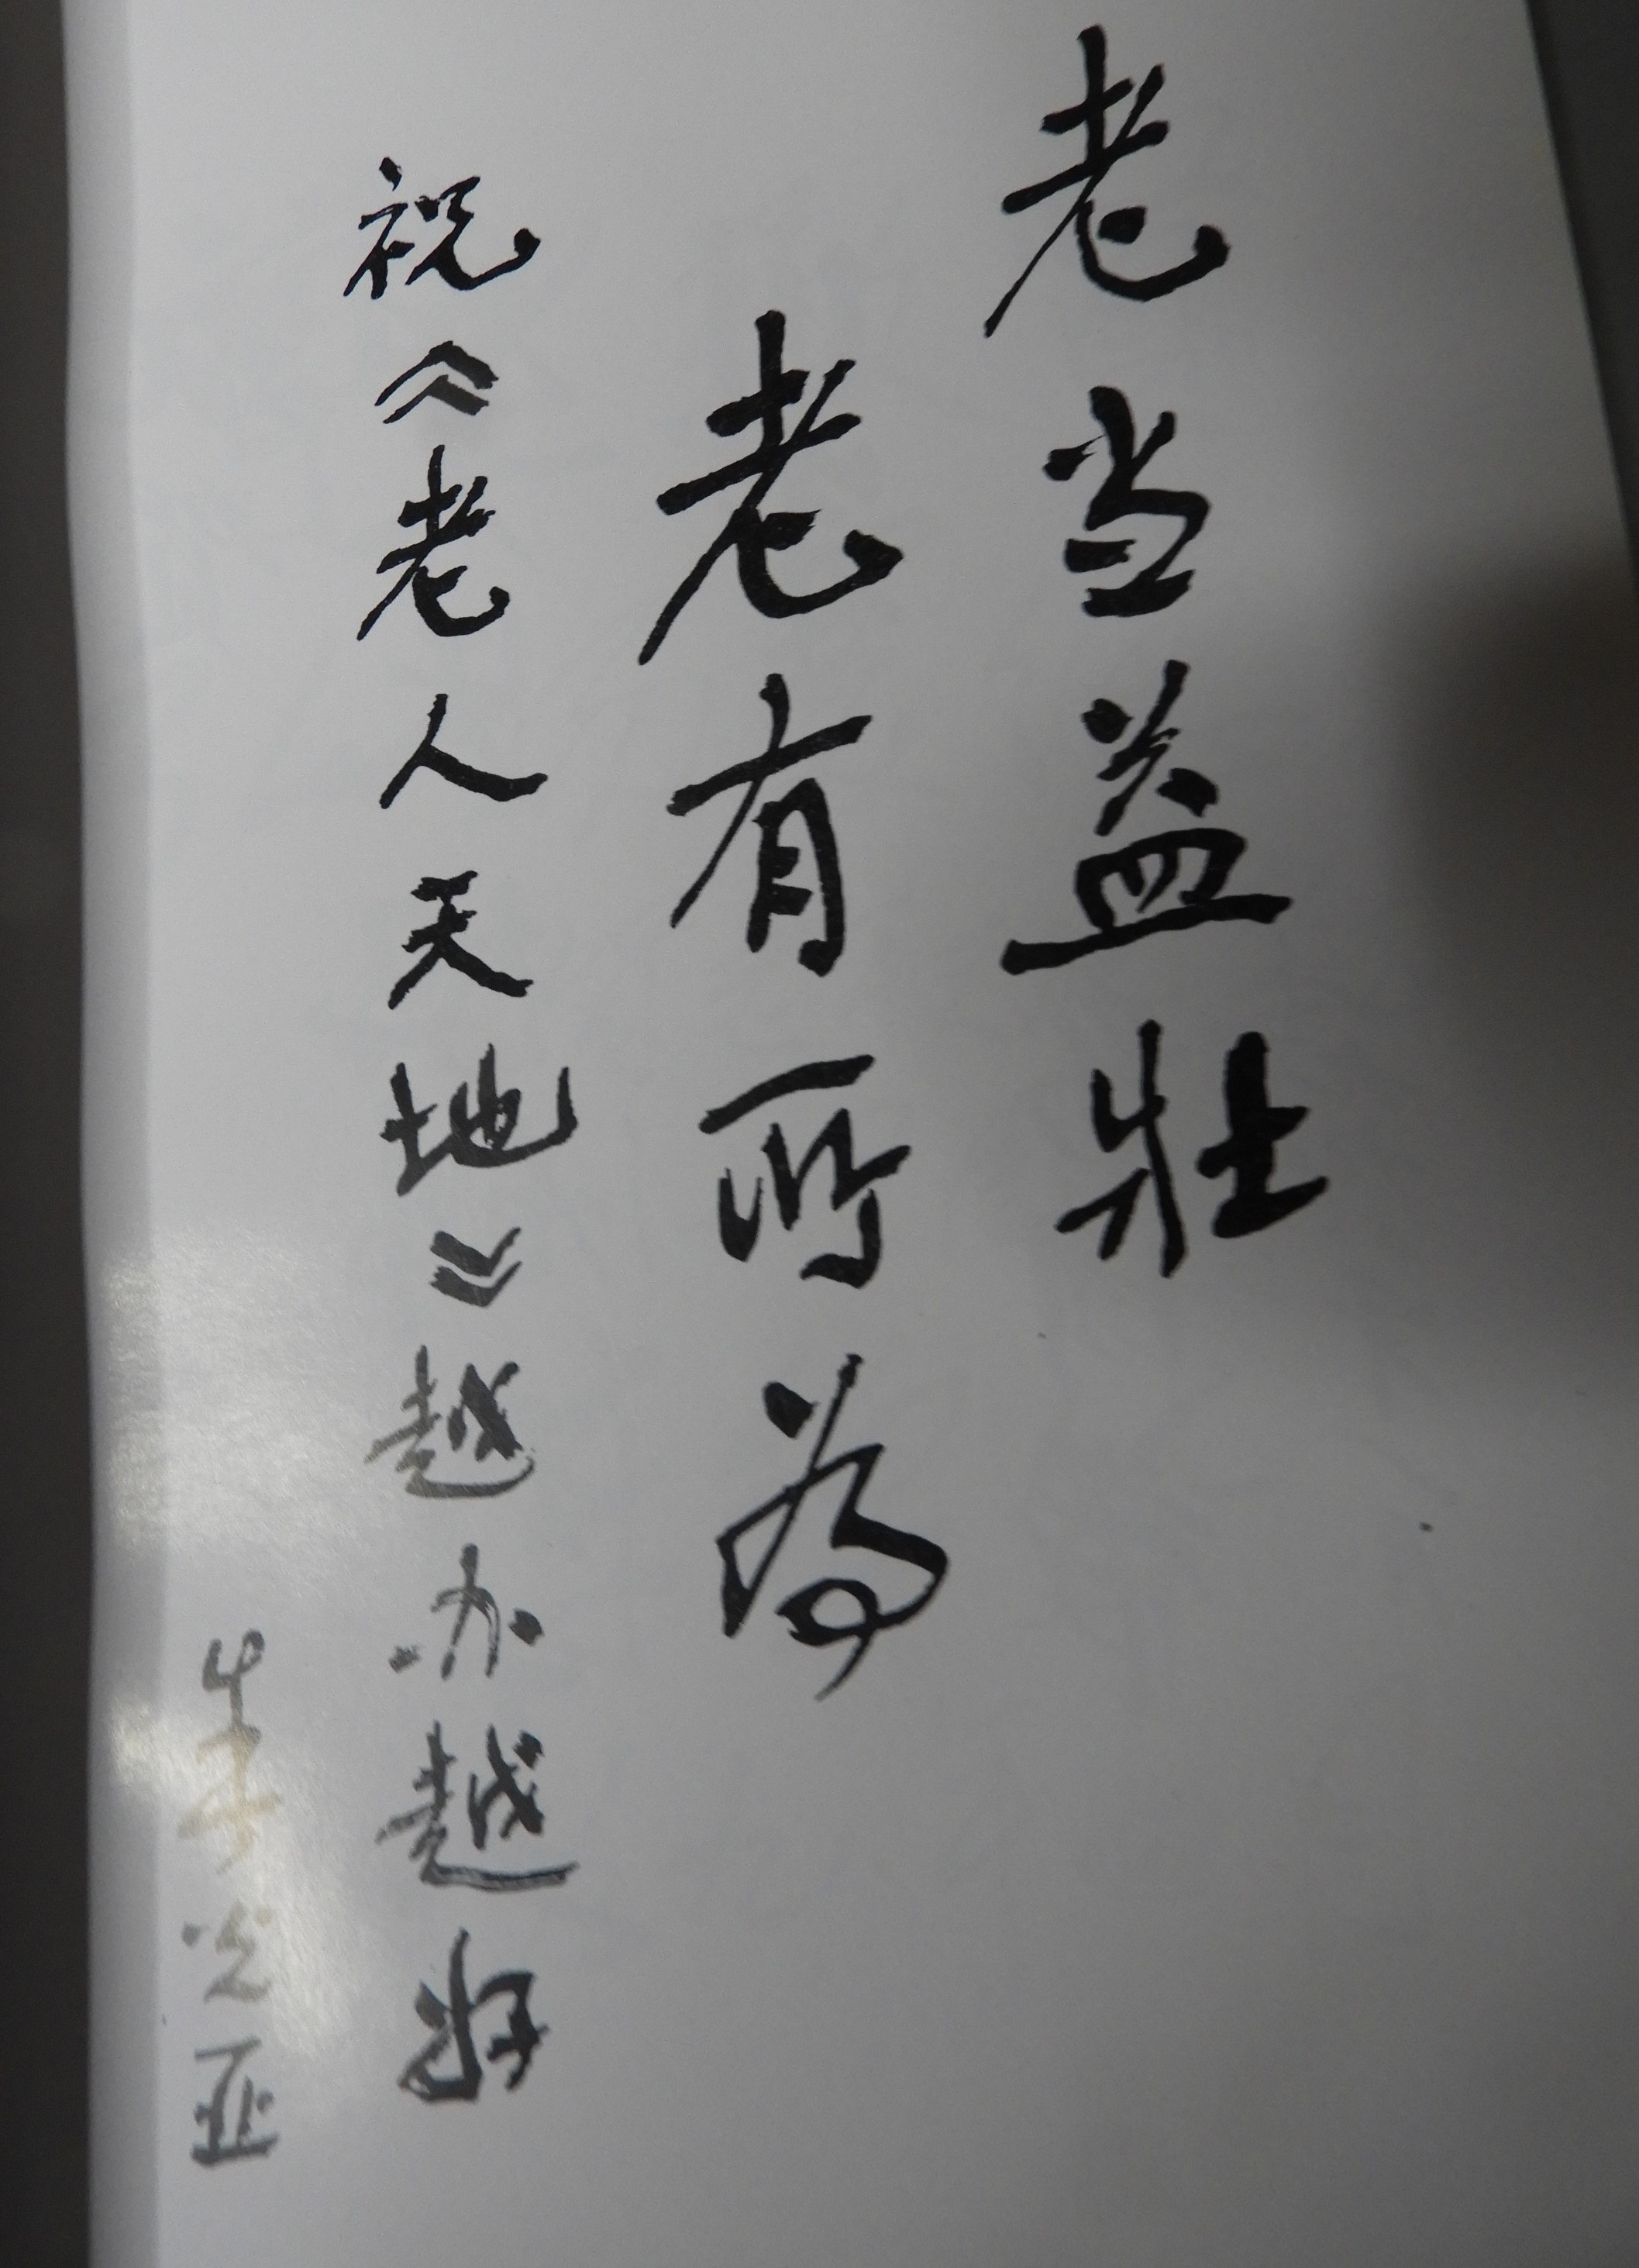 老当益壮
老有所为
祝《老人天地》越办越好
光亚